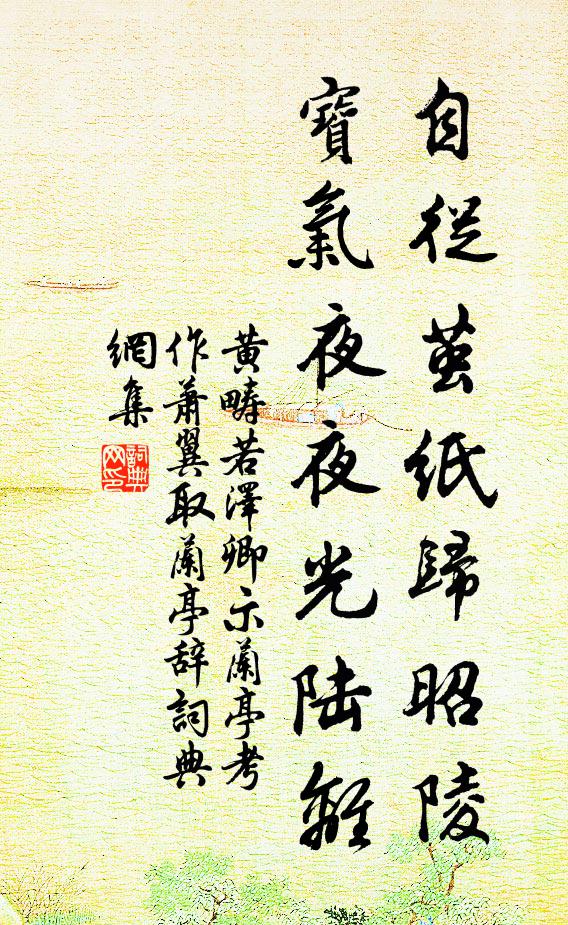 自從茧紙歸昭陵
寶氣夜夜光陆離
黄疇若澤卿示蘭亭考
作蕭翼取蘭亭辞詞典
網集
詞典
网印